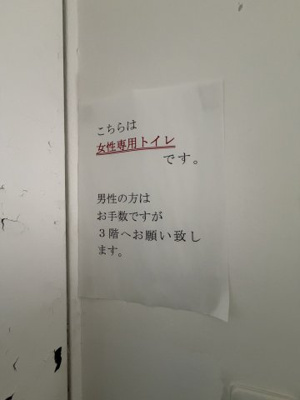 こちらは
女性専用トイレ
です。
男性の方は
お手数ですが
３階へお願い致し
ます。